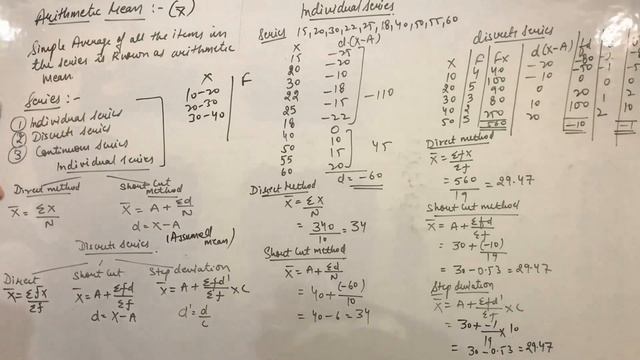 Arithmetic Mean :- (x̄)
Simple Average of all the items in
the series is known as arithmetic
mean
X F
10-20
20-30
30-40
Series :-
① Individual series
② Discrete series
③ Continuous series
Individual series
Direct method
X̄ = ΣX/N
Short Cut method
X̄ = A + Σd/N
d = X-A
(Assumed mean)
Discrete series
Direct
X̄ = Σfx/Σf
Short Cut
X̄ = A + Σfd/Σf
d = X-A
Step deviation
X̄ = A + Σfd'/Σf × C
d' = d/C
Individual series
Series 15, 20, 30, 22, 25, 18, 40, 50, 55, 60
X d(X-A)
15 -25
20 -20
30 -10
22 -18
25 -15
18 -22
-110
40 0
50 10
55 15
60 20
45
d = -60
Direct Method
X̄ = ΣX/N
= 340/10 = 34
Short Cut Method
X̄ = A + Σd/N
= 40 + (-60)/10
= 40-6 = 34
discrete series
X F fx d(X-A) fd
10 4 40 -20 -80
20 5 100 -10 -50
30 3 90 0 0
40 2 80 10 20
50 5 250 20 100
560 -10 -1
Direct method
X̄ = Σfx/Σf
= 560/19 = 29.47
Short Cut method
X̄ = A + Σfd/Σf
= 30 + (-10)/19
= 30-0.53 = 29.47
Step deviation
X̄ = A + Σfd'/Σf × C
= 30 + -1/19 × 10
= 30-0.53 = 29.47